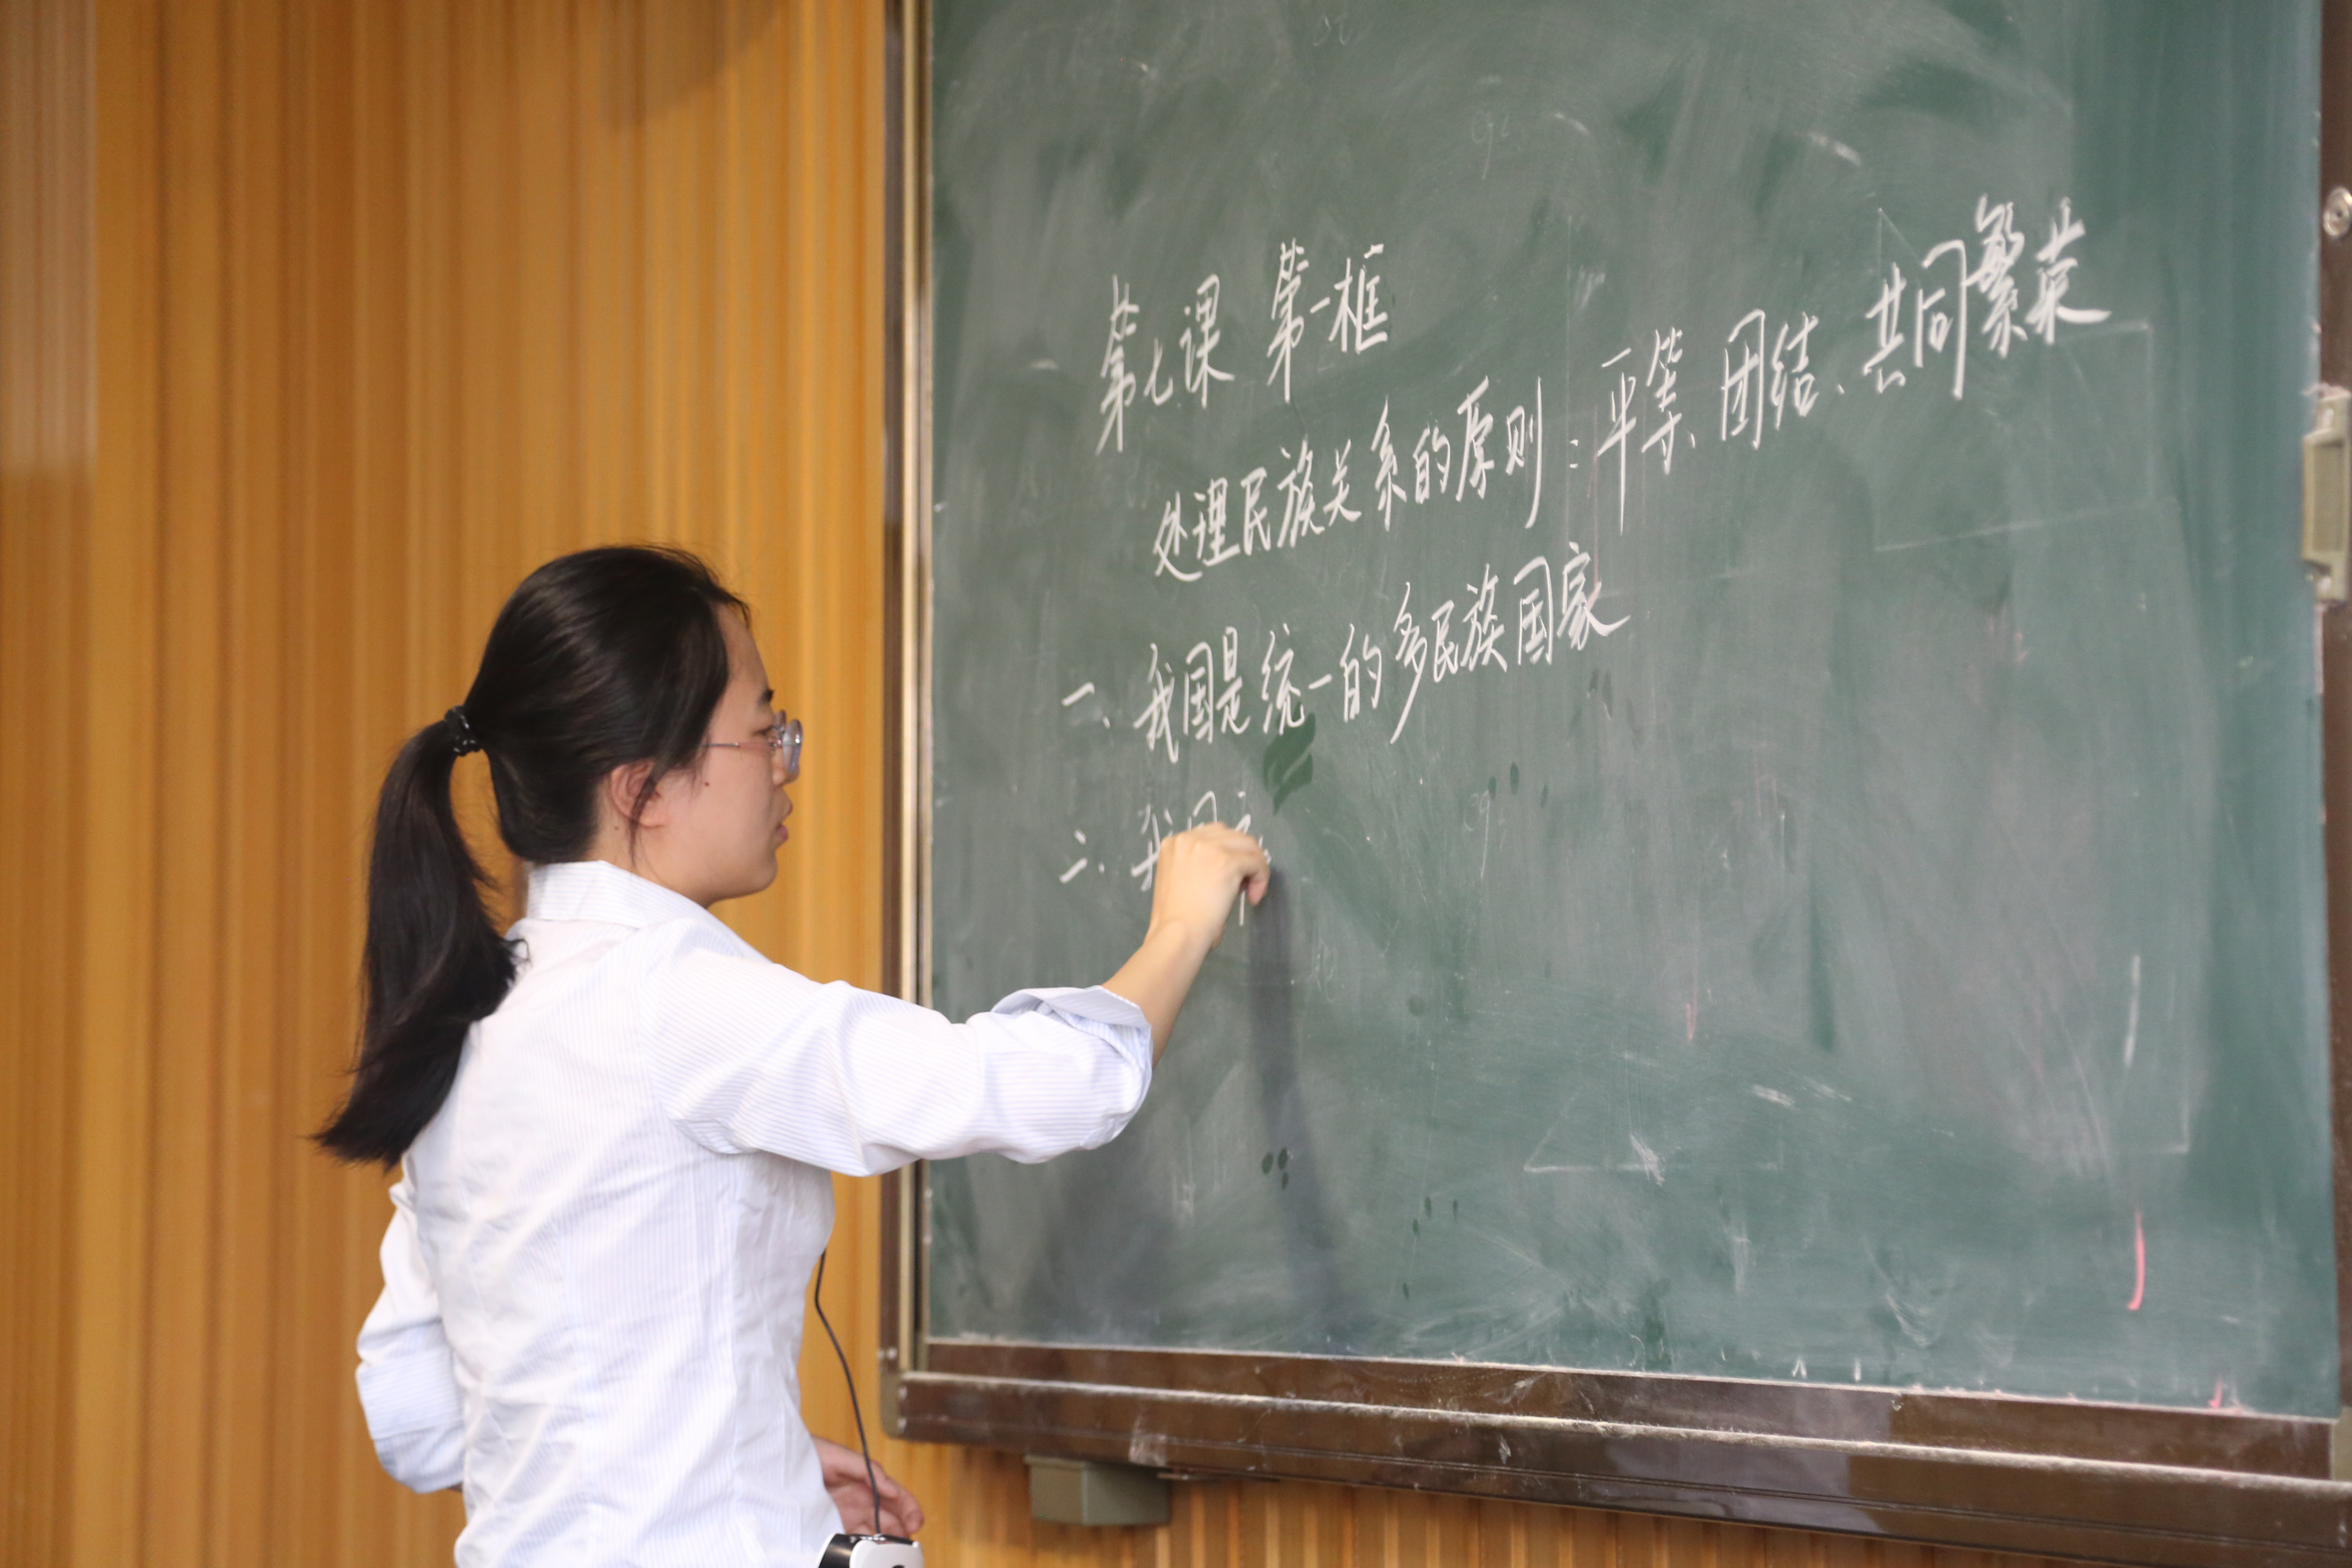 第七课 第一框
处理民族关系的原则:平等、团结、共同繁荣
一、我国是统一的多民族国家
二、我国